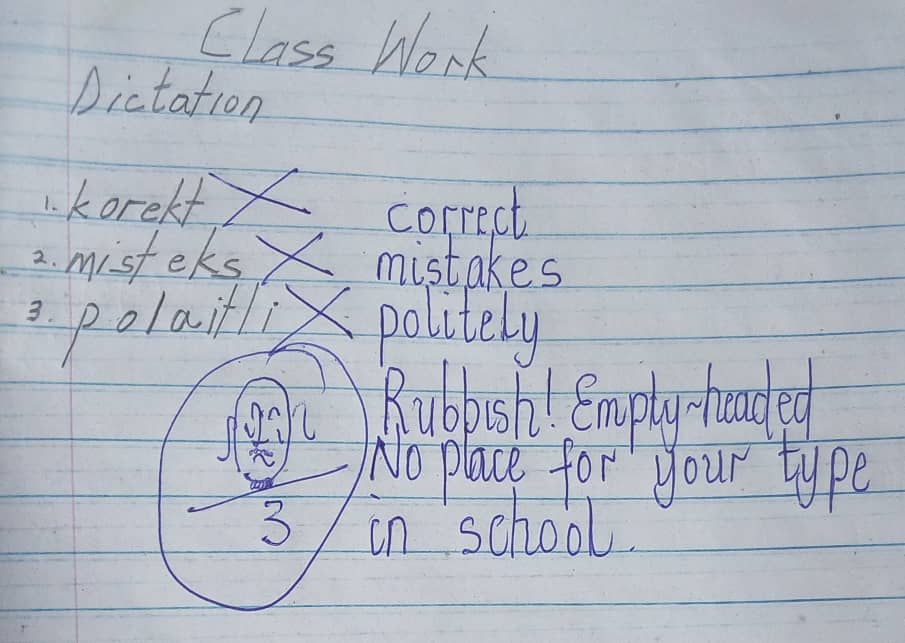 Class Work
Dictation
1. korekt X correct
2. misteks X mistakes
3. polaitli X politely
Rubbish! Empty-headed
No place for your type
in school.
0
3